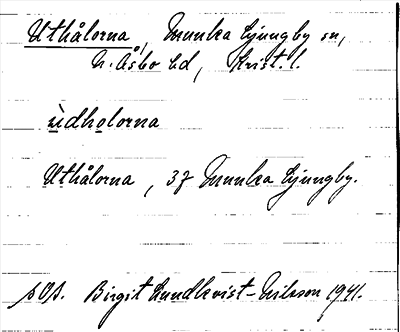 Uthålorna, Munka Ljungby sn,
N. Åsbo hd, Krist. l.
ùdholorna
Uthålorna, 37 Munka Ljungby.
Birgit Lundkvist-Nilsson 1941.